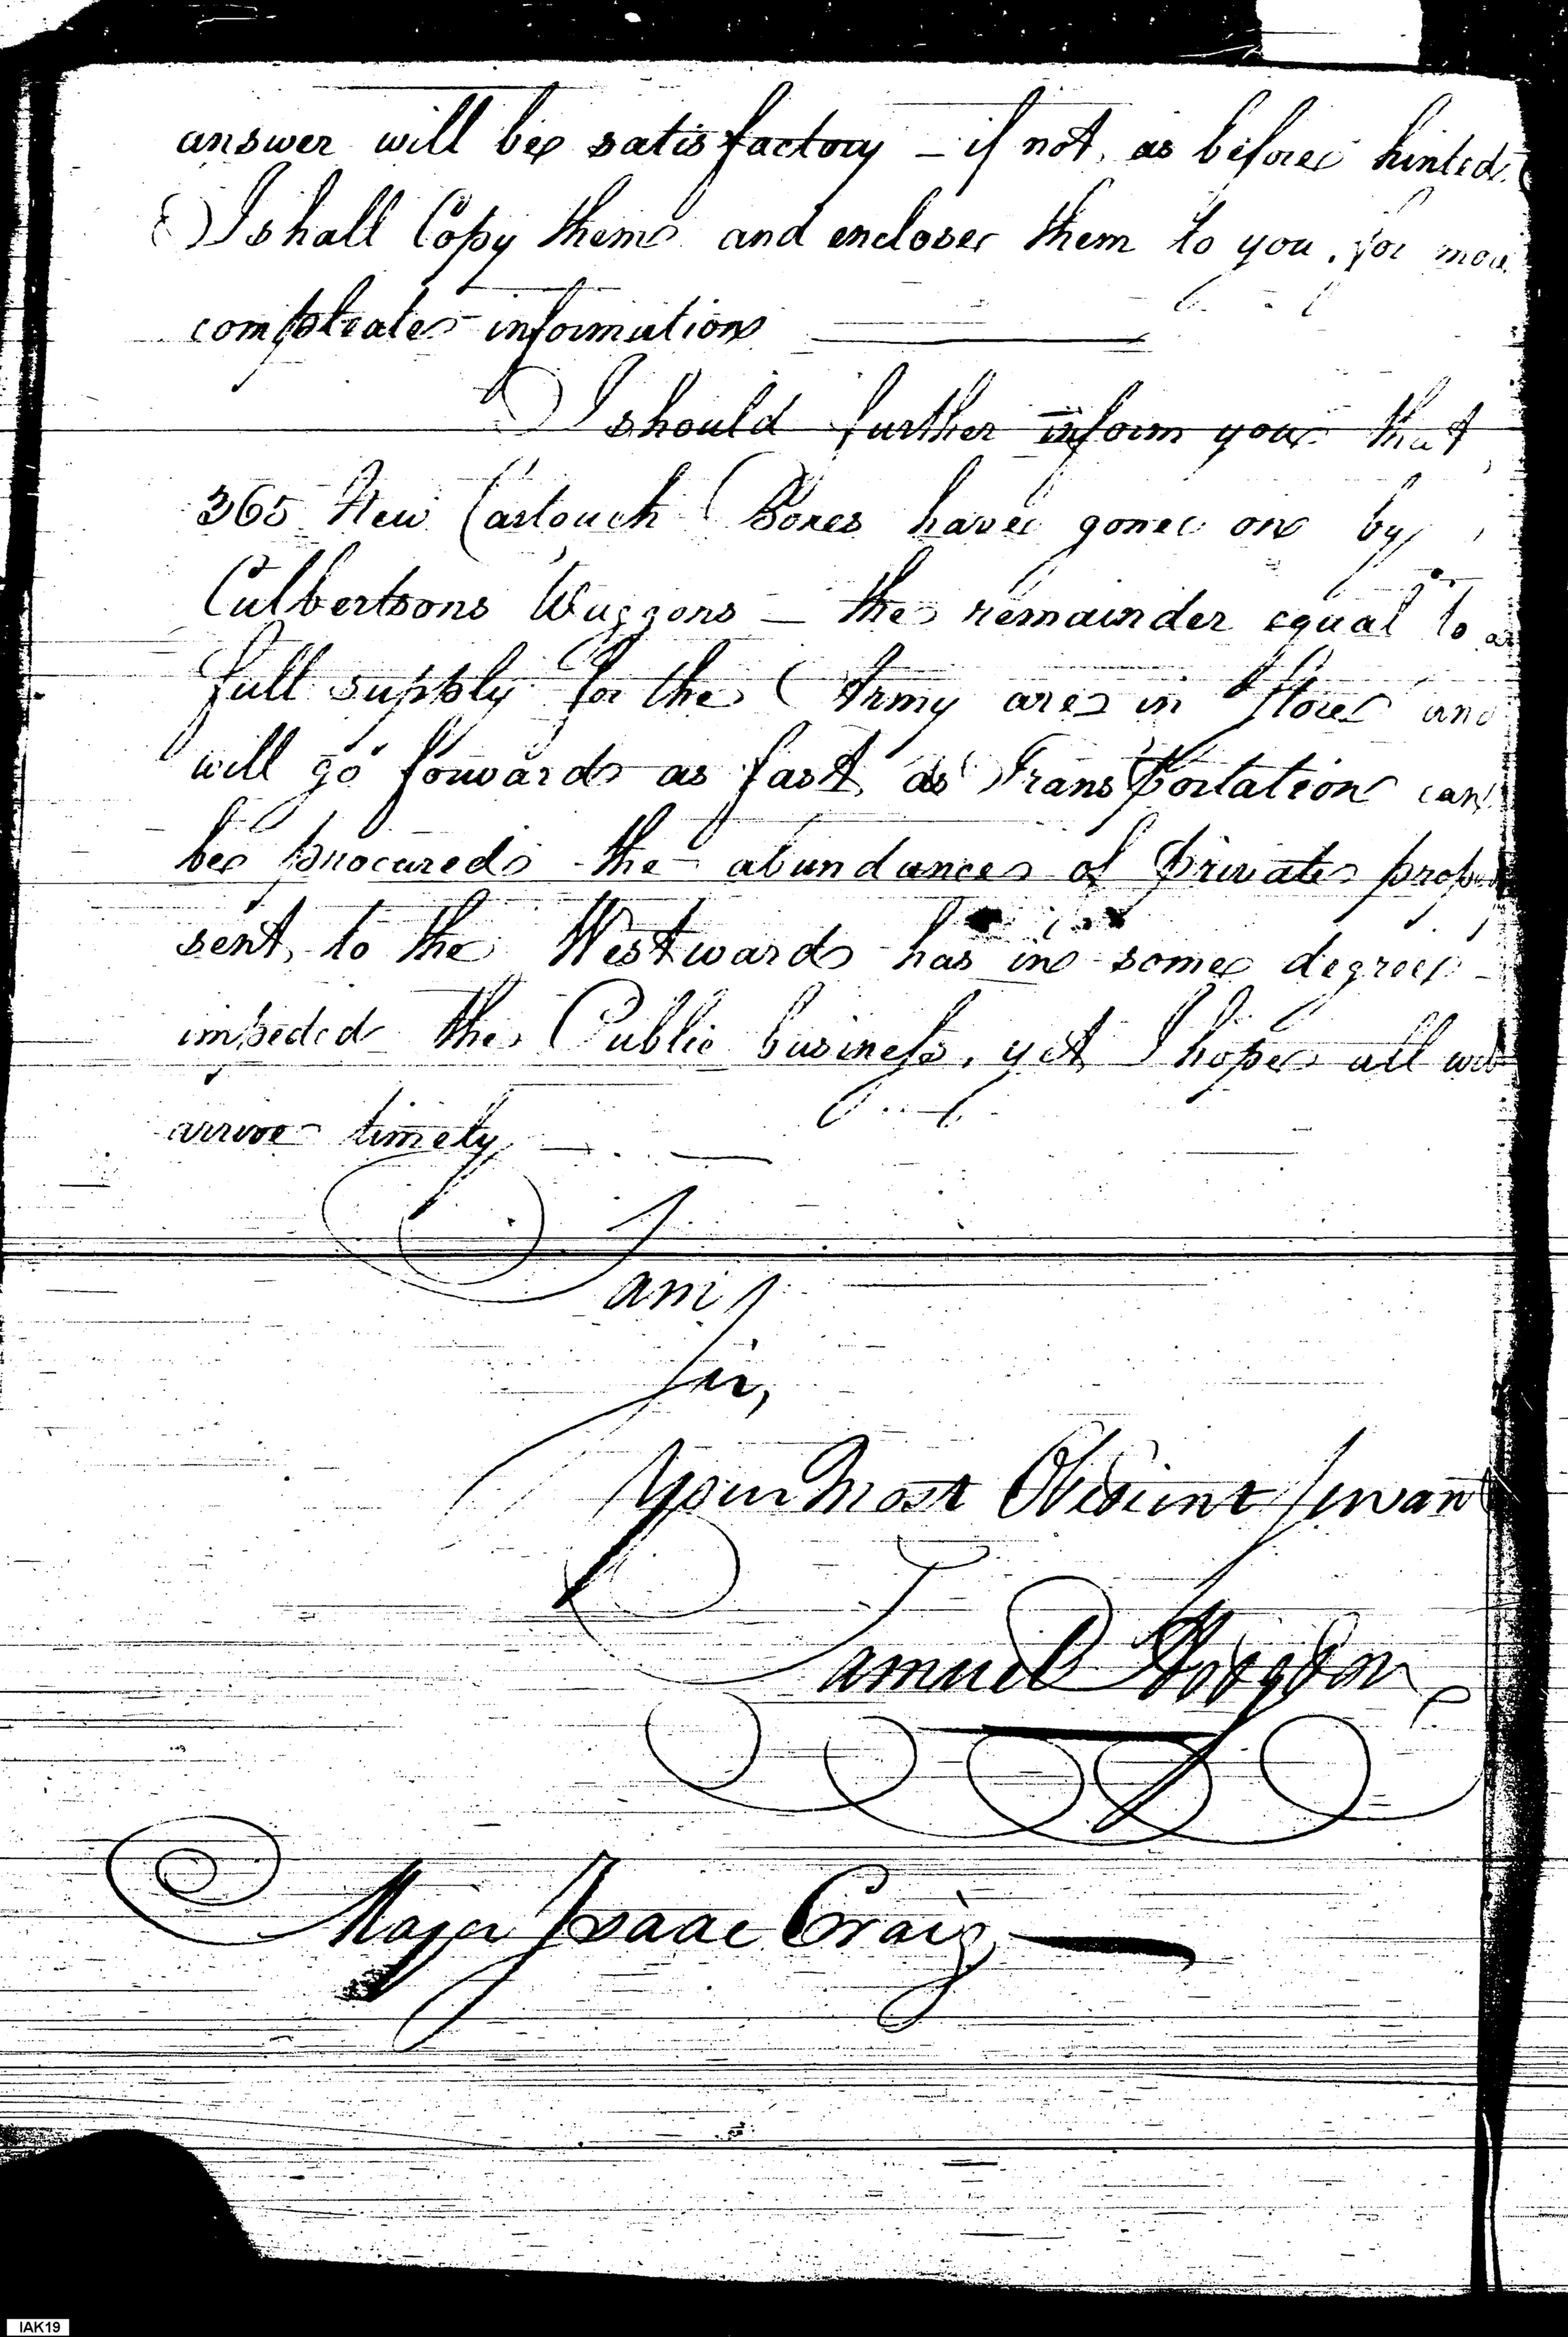 answer will be satisfactory – if not, as before hinted
I shall Copy them and enclose them to you, for more
compleate information
I should further inform you that
365 New Cartouch Boxes have gone on by
Culbertsons Waggons – the remainder equal to a
full supply for the Army are in Store and
will go forward as fast as Transportation can
be procured the abundance of private prop
sent to the Westward has in some degree
impeded the Public business, yet I hope all will
arrive timely
I
am
Sir,
Your Most Obedient Servant
Samuel Hodgdon
Major Isaac Craig
IAK19